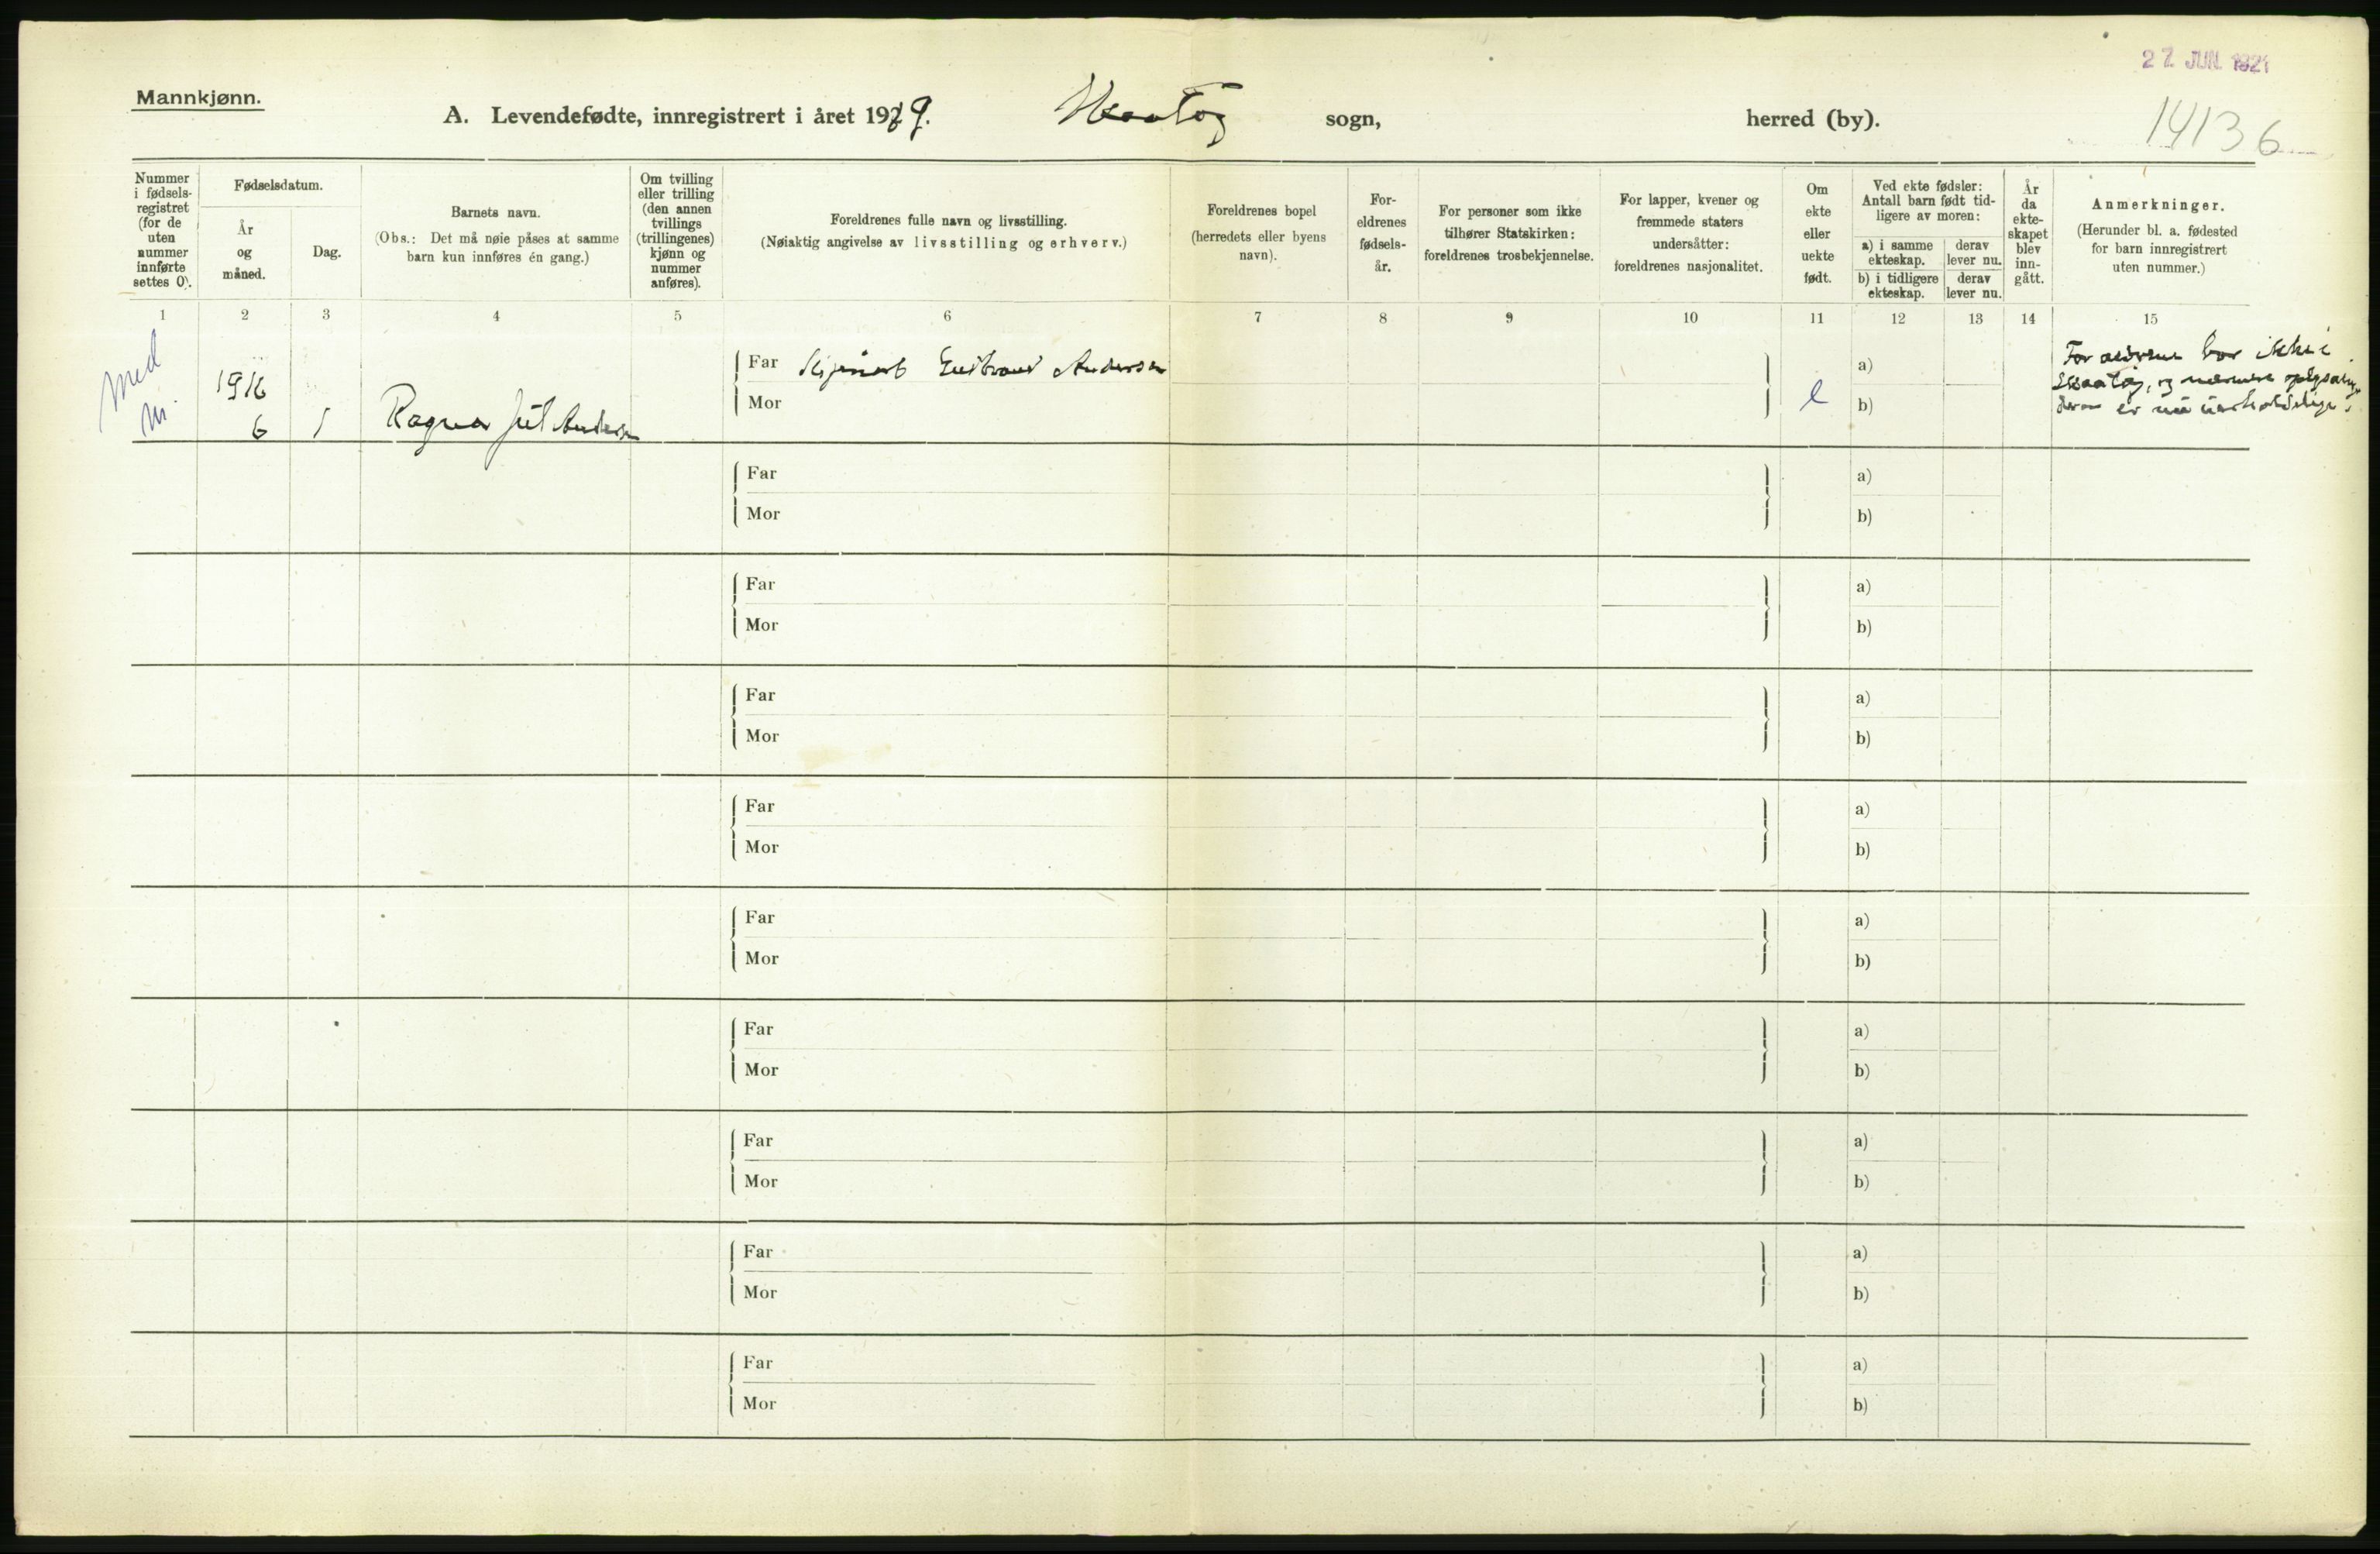 27 JUN 1921
Mannkjønn.
A. Levendefødte, innregistrert i året 1919. Skaatøy sogn, herred (by).
14136
Nummer
i fødsels-
registret
(for de
uten
nummer
innførte
settes 0).
Fødselsdatum.
År
og
måned.
Dag.
Barnets navn.
(Obs.: Det må nøie påses at samme
barn kun innføres én gang.)
Om tvilling
eller trilling
(den annen
tvillings
(trillingenes)
kjønn og
nummer
anføres).
Foreldrenes fulle navn og livsstilling.
(Nøiaktig angivelse av livsstilling og erhverv.)
Foreldrenes bopel
(herredets eller byens
navn).
For-
eldrenes
fødsels-
år.
For personer som ikke
tilhører Statskirken:
foreldrenes trosbekjennelse.
For lapper, kvener og
fremmede staters
undersåtter:
foreldrenes nasjonalitet.
Om
ekte
eller
uekte
født.
Ved ekte fødsler:
Antall barn født tid-
ligere av moren:
a) i samme
ekteskap.
derav
lever nu.
b) i tidligere
ekteskap.
derav
lever nu.
År
da
ekte-
skapet
blev
inn-
gått.
Anmerkninger.
(Herunder bl. a. fødested
for barn innregistrert
uten nummer.)
1 2 3 4 5 6 7 8 9 10 11 12 13 14 15
Med
nr.
1916
6 1
Ragnar Juel Andersen
Far Andersen
Mor
e
a)
b)
Foreldrene bor ikke i
Skaatøy, og nærmere
er
Far a)
Mor b)
Far a)
Mor b)
Far a)
Mor b)
Far a)
Mor b)
Far a)
Mor b)
Far a)
Mor b)
Far a)
Mor b)
Far a)
Mor b)
Far a)
Mor b)